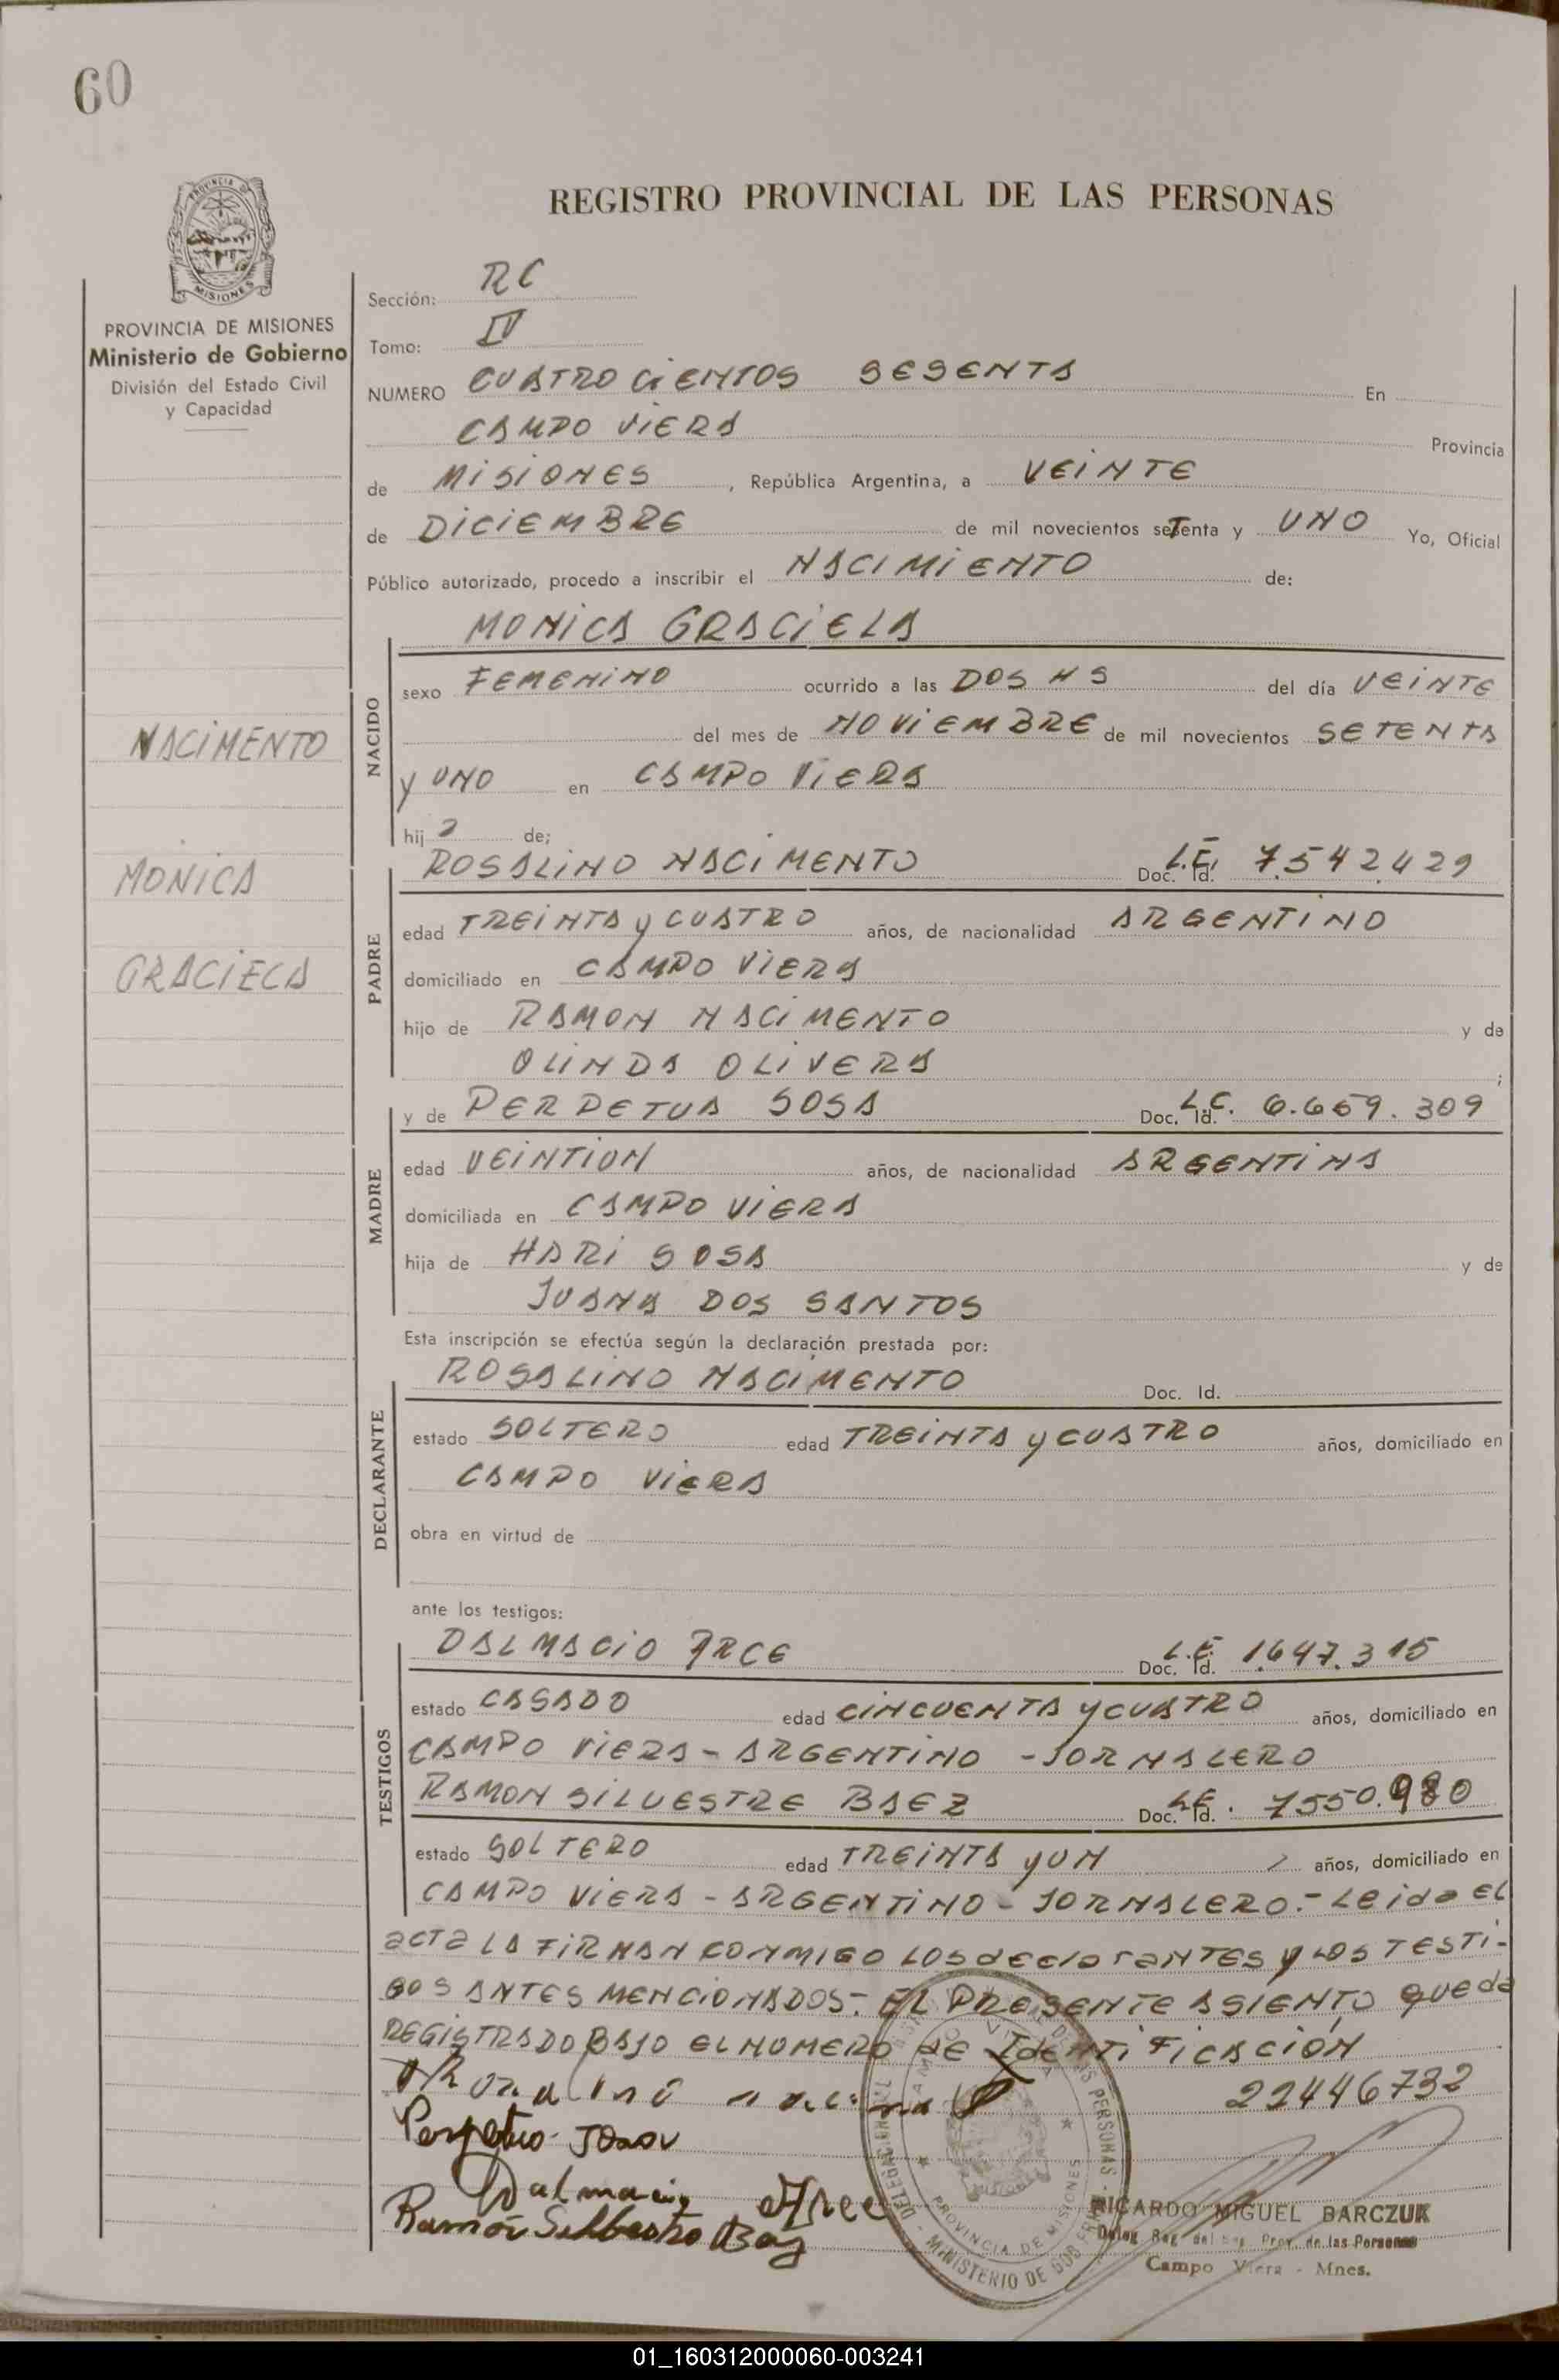 60
REGISTRO PROVINCIAL DE LAS PERSONAS
PROVINCIA DE MISIONES
Ministerio de Gobierno
División del Estado Civil
y Capacidad
NACIMENTO
MONICA
GRACIELA
Sección: RC
Tomo: IV
NUMERO CUATRO CIENTOS SESENTA En
CAMPO VIERA Provincia
de MISIONES, República Argentina, a VEINTE
de DICIEMBRE de mil novecientos seTenta y UNO Yo, Oficial
Público autorizado, procedo a inscribir el NACIMIENTO de:
MONICA GRACIELA
NACIDO
sexo FEMENINO ocurrido a las DOS HS del día VEINTE
del mes de NOVIEMBRE de mil novecientos SETENTA
y UNO en CAMPO VIERA
hij a de;
PADRE
ROSALINO NACIMENTO Doc. Id. L.E. 7.542.429
edad TREINTA y CUATRO años, de nacionalidad ARGENTINO
domiciliado en CAMPO VIERA
hijo de RAMON NACIMENTO y de
OLINDA OLIVERA ;
MADRE
y de PERPETUA SOSA Doc. Id. L.C. 6.659.309
edad VEINTIUN años, de nacionalidad ARGENTINA
domiciliada en CAMPO VIERA
hija de HARI SOSA y de
JUANA DOS SANTOS
Esta inscripción se efectúa según la declaración prestada por:
DECLARANTE
ROSALINO NACIMENTO Doc. Id.
estado SOLTERO edad TREINTA y CUATRO años, domiciliado en
CAMPO VIERA
obra en virtud de
ante los testigos:
TESTIGOS
DALMACIO ARCE Doc. Id. L.E. 1.647.315
estado CASADO edad CINCUENTA y CUATRO años, domiciliado en
CAMPO VIERA - ARGENTINO - JORNALERO
RAMON SILVESTRE BAEZ Doc. Id. L.E. 7550.980
estado SOLTERO edad TREINTA y UN años, domiciliado en
CAMPO VIERA - ARGENTINO - JORNALERO.- Leido el
acta LA FIRMAN CONMIGO LOS declarantes y los TESTI-
GOS ANTES MENCIONADOS.- EL PRESENTE ASIENTO queda
REGISTRADO BAJO EL NUMERO DE IdentiFICACION
22446732
Dalmacio Arce
PROVINCIA DE MISIONES
MINISTERIO DE GOB
RICARDO MIGUEL BARCZUK
Deleg. Reg. del Reg. Prov. de las Personas
Campo Viera - Mnes.
01_160312000060-003241